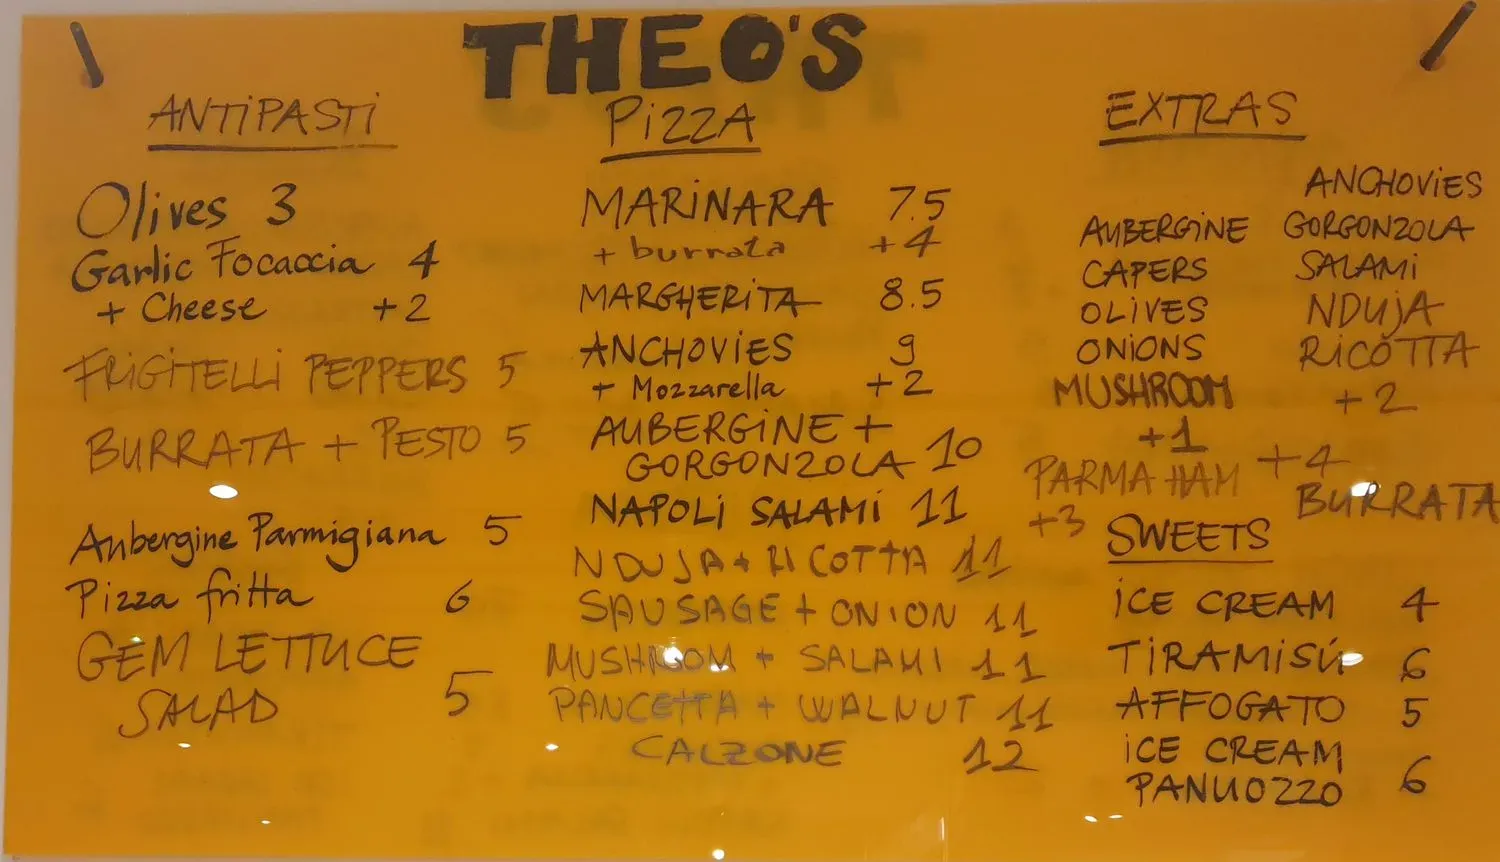 THEO'S
ANTIPASTI
Olives 3
Garlic Focaccia 4
+ Cheese +2
FRIGITELLI PEPPERS 5
BURRATA + PESTO 5
Aubergine Parmigiana 5
Pizza fritta 6
GEM LETTUCE
SALAD 5
PIZZA
MARINARA 7.5
+ burrata +4
MARGHERITA 8.5
ANCHOVIES 9
+ Mozzarella +2
AUBERGINE +
GORGONZOLA 10
NAPOLI SALAMI 11
NDUJA + RICOTTA 11
SAUSAGE + ONION 11
MUSHROOM + SALAMI 11
PANCETTA + WALNUT 11
CALZONE 12
EXTRAS
AUBERGINE
CAPERS
OLIVES
ONIONS
MUSHROOM
+1
PARMA HAM
+3
ANCHOVIES
GORGONZOLA
SALAMI
NDUJA
RICOTTA
+2
+4
BURRATA
SWEETS
ICE CREAM 4
TIRAMISÚ 6
AFFOGATO 5
ICE CREAM
PANUOZZO 6